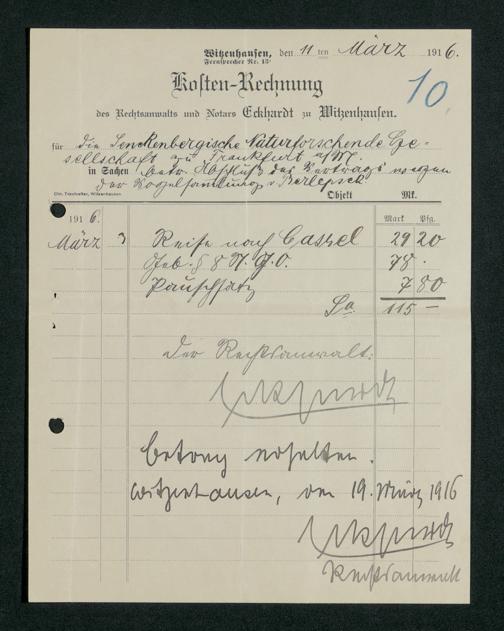 Witzenhausen, den 11 ten März 1916.
Fernsprecher Nr. 15
10
Kosten-Rechnung
des Rechtsanwalts und Notars Eckhardt zu Witzenhausen.
für die Senckenbergische Naturforschende Ge-
sellschaft zu Frankfurt a/M.
in Sachen betr. Abschluß des Vertrags wegen
der Vogelsammlung v. Berlepsch
Objekt Mk.
1916. Mark Pfg.
März 3 Reise nach Cassel 29 20
Geb. § 8 N. G. O. 78 .
Pauschsatz 7 80
Sa. 115 —
Der Rechtsanwalt:
Eckhardt
Betrag erhalten.
Witzenhausen, den 19. März 1916
Eckhardt
Rechtsanwalt